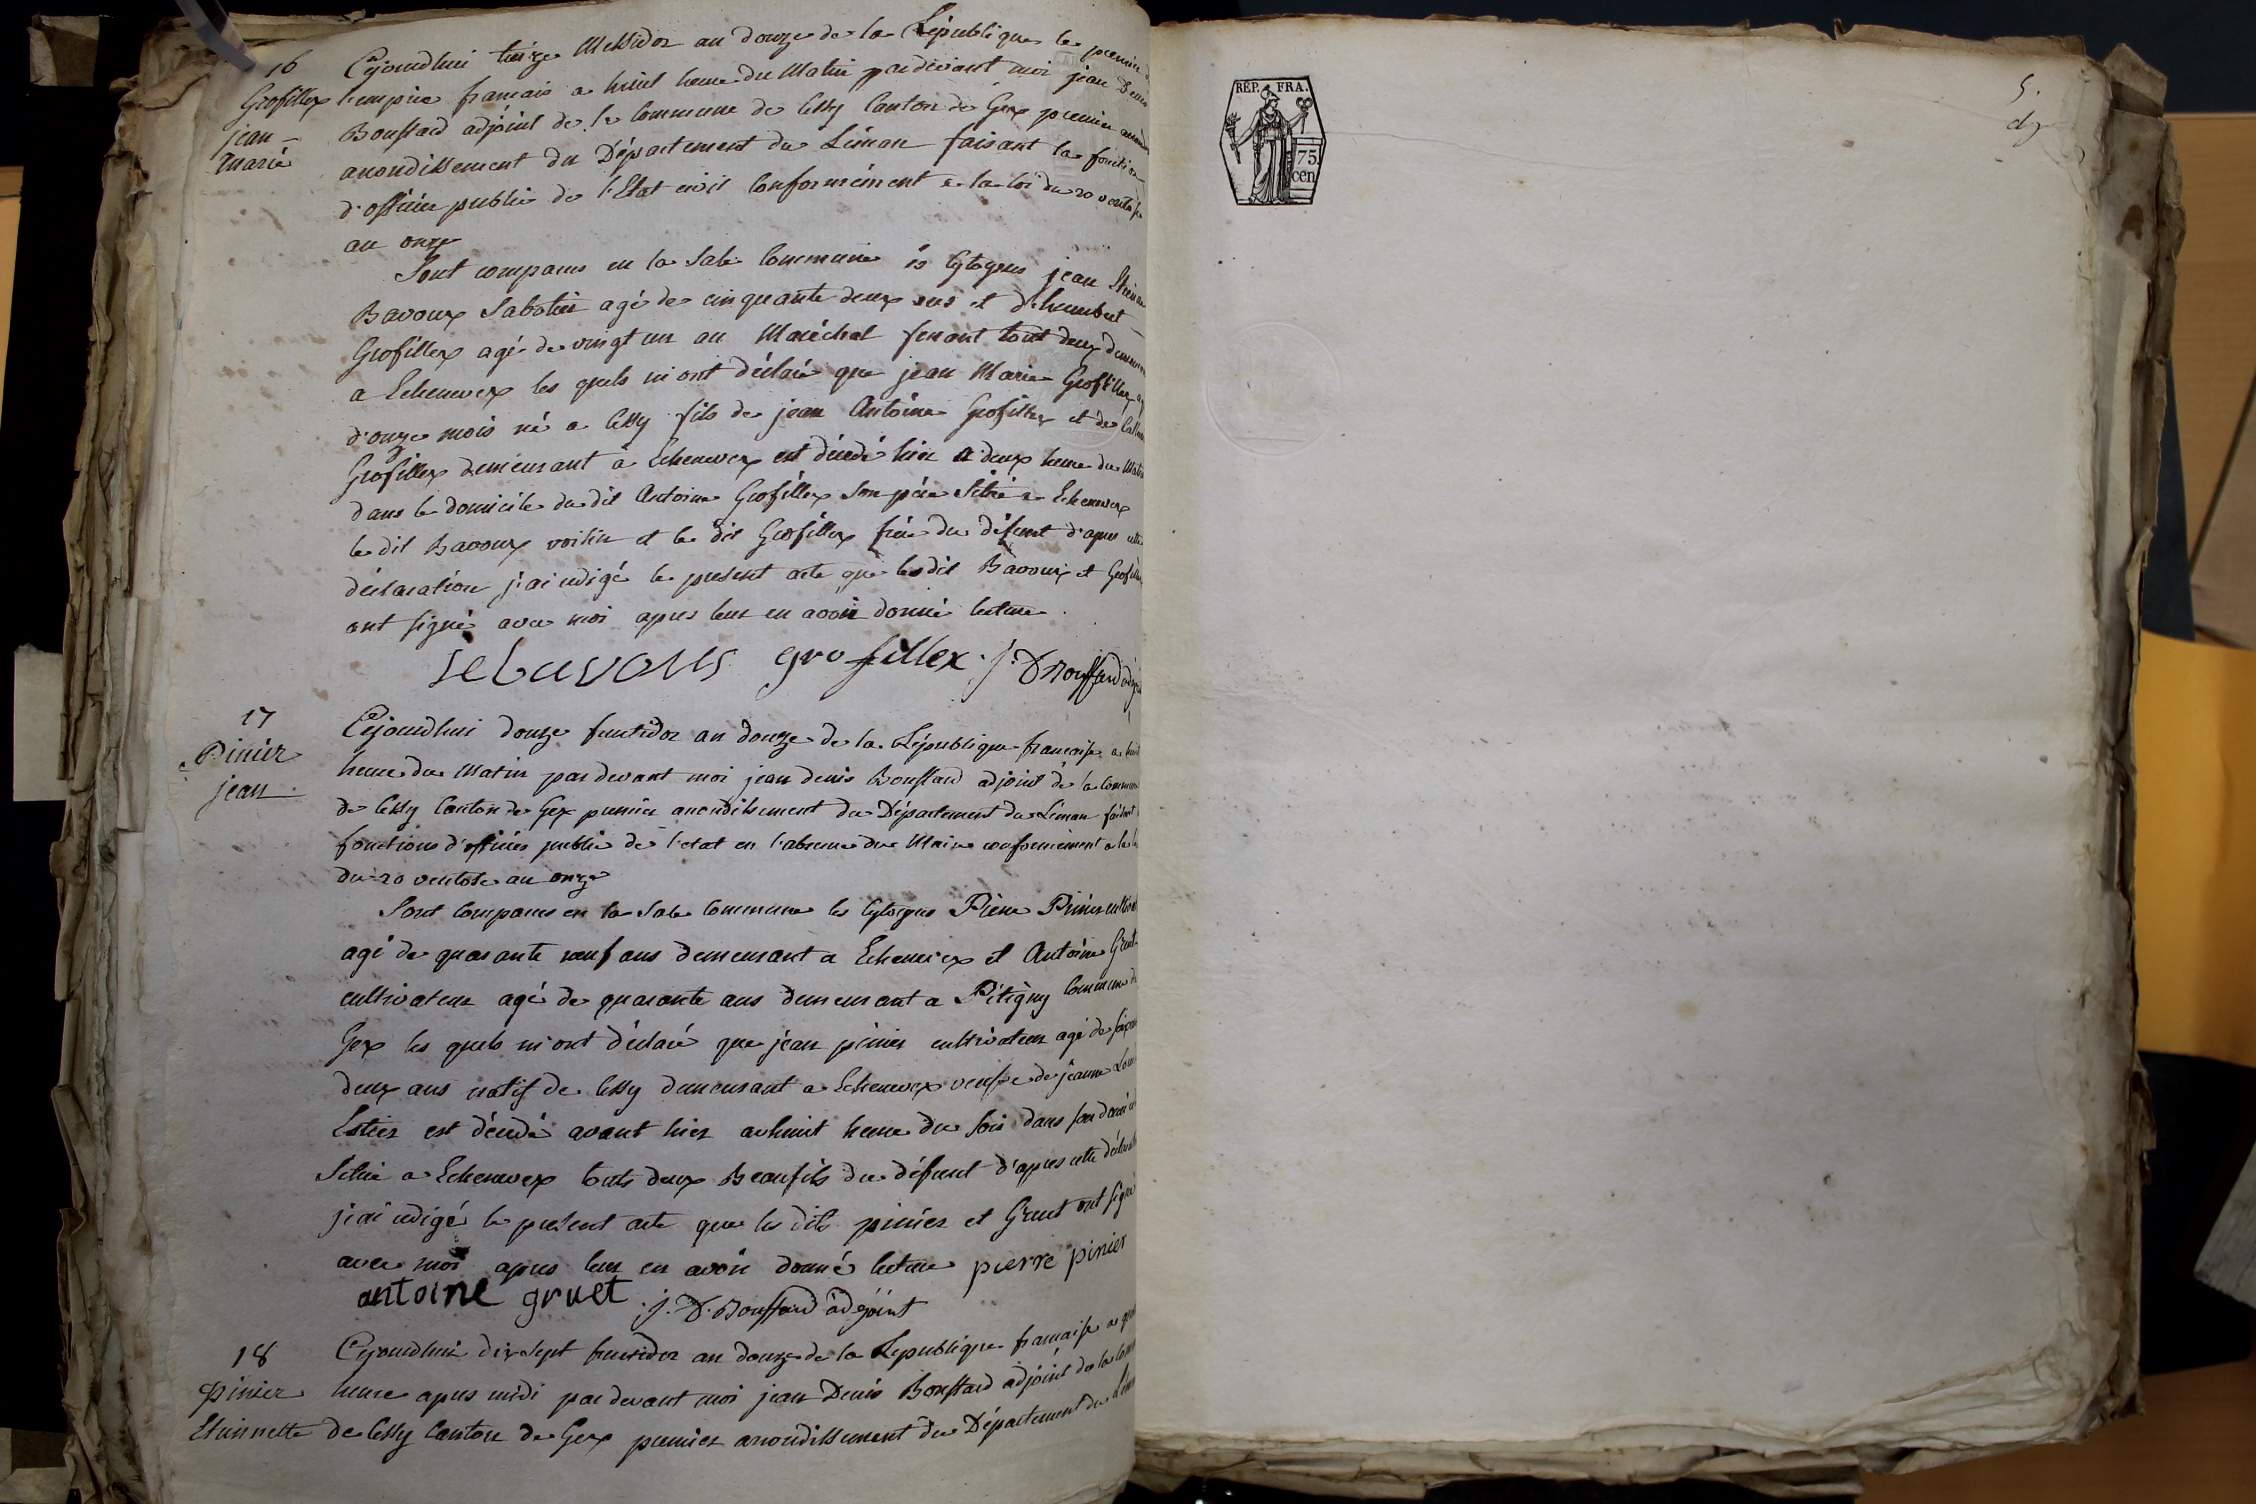 16
Grofillex
jean -
Marie
Cejourdhui treize Messidor an douze de la République le premier
l'empire francais a huit heure du Matin pardevant moi jean Denis
Bouffard adjoint de la Commune de Cessy Canton de Gex premier
arrondissement du Département du Léman faisant la fonction
d'officier public de l'Etat civil Conformément a la loi du 20 ventose
an onze
Sont comparus en la Sale Commune és Cytoyens jean
Bavoux Sabotier agé de cinquante deux ans et d'humbert
Grofillex agé de vingt un an Maréchal ferant tout deux
a Echenevex les quels m'ont déclaré que jean Marie Grofillex
d'onze mois né a Cessy fils de jean Antoine Grofillex et de
Grofillex demeurant à Echenevex est décédé hier a deux heure du Matin
dans le domicile du dit Antoine Grofillex Son père Situé a Echenevex
le dit Bavoux voisin et le dit Grofillex frère du défunt d'apres cette
déclaration j'ai redigé le present acte que les dit Bavoux et Grofillex
ont signé avec moi apres leur en avoir donné lecture.
grofillex. j. D Bouffard
17
Pinier
jean
Cejourdhui douze fructidor an douze de la République francaise a huit
heure du Matin pardevant moi jean denis Bouffard adjoint de la Commune
de Cessy Canton de Gex premier arrondissement du Département du Léman faisant
fonctions d'officier public de l'etat en l'absence du Maire conformément a la
du 20 ventose an onze
Sont Comparus en la Sale Commune les Cytoyens Pierre Pinier
agé de quarante neuf ans demeurant a Echenevex et Antoine Gruet
cultivateur agé de quarante ans demeurant a Pitegny Commune de
Gex les quels m'ont déclaré que jean pinier cultivateur agé de
deux ans natif de Cessy demeurant a Echenevex veuf de jeanne
est décédé avant hier a huit heure du Soir dans son
Situé a Echenevex touts deux Beaufils du défunt d'apres cette
j'ai redigé le present acte que les dits pinier et Gruet ont signé
avec moi apres leur en avoir donné lecture pierre pinier
antoine gruet. j. D. Bouffard adejoint
18
Pinier
Etiennette
Cejourdhui dix sept fructidor an douze de la Republique francaise a
heure apres midi pardevant moi jean Denis Bouffard adjoint de la
de Cessy Canton de Gex premier arrondissement du Département du
RÉP. FRA.
75
cen
5.